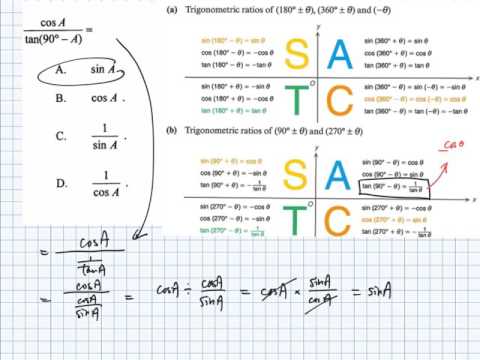 cosA / tan(90° − A) =
A. sin A.
B. cos A .
C. 1 / sin A .
D. 1 / cos A .
(a) Trigonometric ratios of (180° ± θ), (360° ± θ) and (−θ)
y
sin (180° − θ) = sin θ
cos (180° − θ) = −cos θ
tan (180° − θ) = −tan θ
S A
sin (360° + θ) = sin θ
cos (360° + θ) = cos θ
tan (360° + θ) = tan θ
x
sin (180° + θ) = −sin θ
cos (180° + θ) = −cos θ
tan (180° + θ) = tan θ
T C
sin (360° − θ) = sin (−θ) = −sin θ
cos (360° − θ) = cos (−θ) = cos θ
tan (360° − θ) = tan (−θ) = −tan θ
(b) Trigonometric ratios of (90° ± θ) and (270° ± θ)
y
cos θ
sin (90° + θ) = cos θ
cos (90° + θ) = −sin θ
tan (90° + θ) = − 1 / tan θ
S A
sin (90° − θ) = cos θ
cos (90° − θ) = sin θ
tan (90° − θ) = 1 / tan θ
x
sin (270° − θ) = −cos θ
cos (270° − θ) = −sin θ
tan (270° − θ) = 1 / tan θ
T C
sin (270° + θ) = −cos θ
cos (270° + θ) = sin θ
tan (270° + θ) = − 1 / tan θ
= cosA / (1 / tanA)
= cosA / (cosA / sinA) = cosA ÷ cosA / sinA = cosA × sinA / cosA = sinA